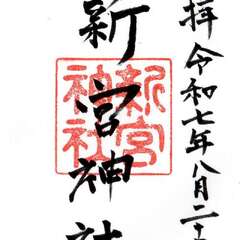 拝令和七年八月二十
新宮神社
新宮神社